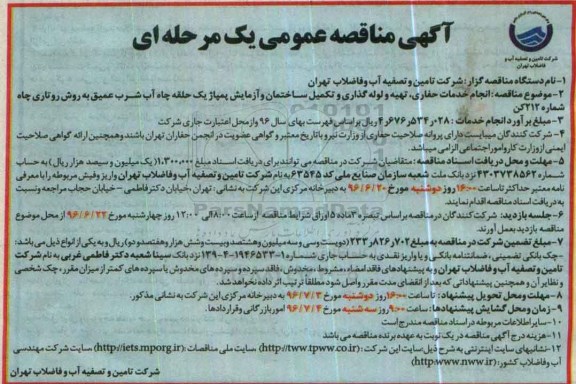 شرکت تامین و تصفیه آب و
فاضلاب تهران
آگهی مناقصه عمومی یک مرحله ای
۱- نام دستگاه مناقصه گزار: شرکت تامین و تصفیه آب وفاضلاب تهران
۲- موضوع مناقصه: انجام خدمات حفاری، تهیه و لوله گذاری و تکمیل ساختمان و آزمایش پمپاژ یک حلقه چاه آب شرب عمیق به روش روتاری چاه
شماره ۲۱۲ کن
۳- مبلغ برآورد انجام خدمات : ۴٫۶۷۶٫۵۳۴٫۰۲۸ ریال براساس فهرست بهای سال ۹۶ واز محل اعتبارت جاری شرکت
۴- شرکت کنندگان میبایست دارای پروانه صلاحیت حفاری از وزارت نیرو با تاریخ معتبر و گواهی عضویت در انجمن حفاران تهران باشند وهمچنین ارائه گواهی صلاحیت
ایمنی ازوزارت کارواموراجتماعی الزامی میباشد.
۵- مهلت و محل دریافت اسناد مناقصه: متقاضیان شرکت در مناقصه می توانند برای دریافت اسناد مبلغ ۱٫۳۰۰٫۰۰۰ (یک میلیون و سیصد هزار ریال) به حساب
شماره ۴۳۰۷۲۳۸۵۶۲ نزد بانک ملت شعبه سازمان صنایع ملی کد ۶۳۵۴۵ به نام شرکت تامین و تصفیه آب وفاضلاب تهران واریز وفیش مربوطه را با معرفی
نامه معتبر حداکثر تا ساعت ۱۶:۰۰ روز دوشنبه مورخ ۹۶/۶/۲۰ به دبیرخانه مرکزی این شرکت به نشانی: تهران ،خیابان دکتر فاطمی - خیابان حجاب مراجعه ونسبت
به دریافت اسناد مناقصه اقدام نمایند.
۶- جلسه بازدید: شرکت کنندگان درمناقصه براساس تبصره ۳ ماده ۱۵ اوراق شرایط مناقصه از ساعت ۸:۰۰ الی ۱۲:۰۰ روز چهارشنبه مورخ ۹۶/۶/۲۲ از محل موضوع
مناقصه بازدید بعمل آورند.
۷- مبلغ تضمین شرکت در مناقصه به مبلغ ۲۳۳٫۸۲۶٫۷۰۲ (دویست وسی و سه میلیون وهشتصد وبیست وشش هزار وهفتصد ودو) ریال وبه یکی از انواع ذیل می باشد:
-چک بانکی تضمینی، ضمانتنامه بانکی و یا واریز نقدی به حساب جاری شماره ۱-۱۹۴۶۵۳۳-۴-۱۳۹ نزد بانک سینا شعبه دکتر فاطمی غربی به نام شرکت
تامین و تصفیه آب و فاضلاب تهران و به پیشنهادهای فاقد امضاء، مشروط، مخدوش، فاقد سپرده و سپرده های مخدوش یا سپرده های کمتر از میزان مقرر، چک شخصی
و نظایر آن و همچنین پیشنهاداتی که بعد از انقضای مدت مقرر واصل شود مطلقاً ترتیب اثر داده نخواهد شد.
۸- مهلت ومحل تحویل پیشنهادها: تا ساعت ۱۶:۰۰ روز دوشنبه مورخ ۹۶/۷/۳ به دبیرخانه مرکزی این شرکت به نشانی مذکور.
۹- زمان ومحل گشایش پیشنهادها: ساعت ۹:۰۰ روز سه شنبه مورخ ۹۶/۷/۴ امور بازرگانی وقراردادها.
۱۰- سایر اطلاعات مربوطه در اسناد مناقصه مندرج است
۱۱- هزینه درج آگهی مناقصه در یک نوبت به عهده برنده مناقصه می باشد
۱۲- نشانیهای سایت اینترنتی به شرح ذیل: سایت این شرکت: (http://tww.tpww.co.ir) سایت ملی مناقصات: (http://iets.mporg.ir) سایت شرکت مهندسی
آب وفاضلاب کشور: (http://www.nww.ir)
شرکت تامین و تصفیه آب و فاضلاب تهران